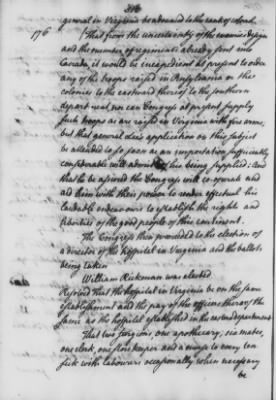 general in Virginia be advanced to the rank of colonel.
176 That from the uncertainty of the enemies designs
and the number of regiments already sent into
Canada, it would be inexpedient at present to order
any of the troops raised in Pensylvania or the
colonies to the eastward thereof to the southern
department nor can Congress at present supply
such troops as are raised in Virginia with fire arms,
but that general Lee's application on this subject
be attended to so soon as an importation sufficiently
considerable will admit of his being supplied: And
that he be assured the Congress will co-operate and
aid him with their power to render effectual his
laudable endeavours to establish the rights and
liberties of the good people of this continent.
The Congress then proceeded to the election of
a director of the hospital in Virginia and the ballots
being taken
William Rickman was elected
Resolved That the hospital in Virginia be on the same
establishment and the pay of the officers thereof the
same as the hospital established in the eastern department
That two surgeons, one apothecary, six mates,
one clerk, one storekeeper and a nurse to every ten
sick with labourers occasionally when necessary
be